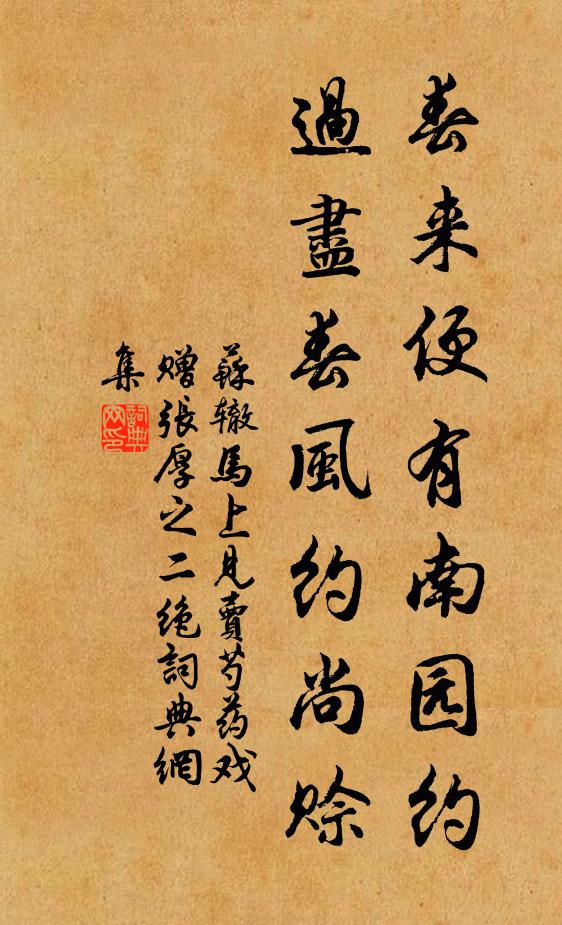 春来便有南园约
過盡春風約尚賒
蘇辙馬上見賣芍药戏
贈張厚之二绝詞典網
集
詞典